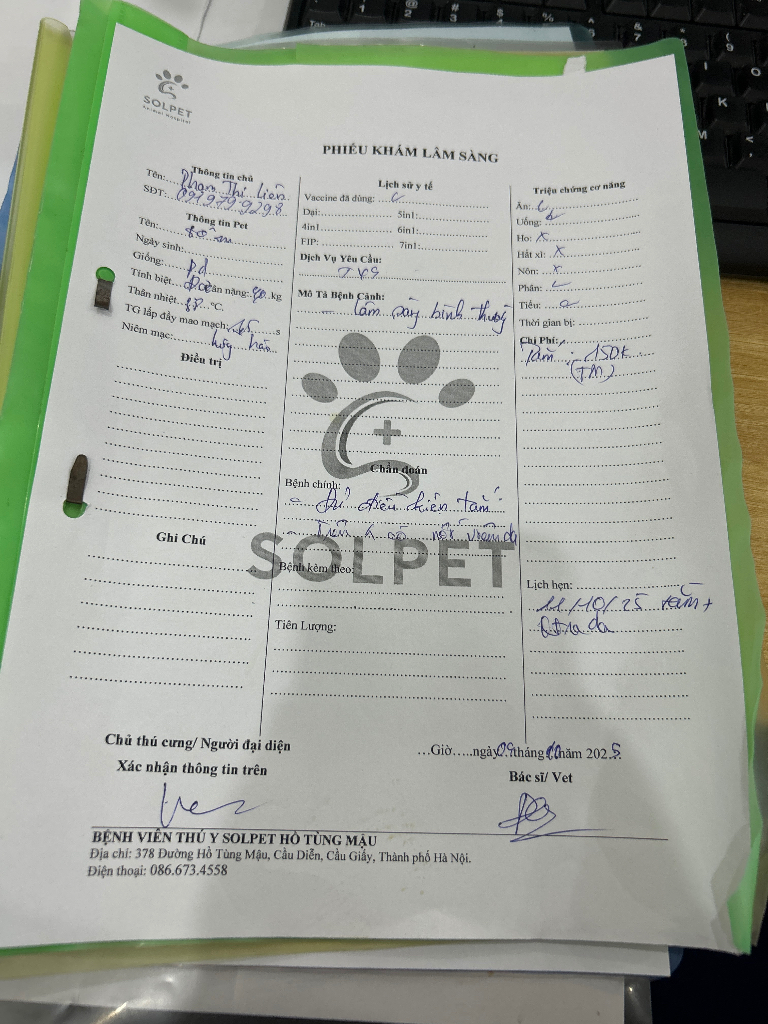 SOLPET
Animal Hospital
PHIẾU KHÁM LÂM SÀNG
Thông tin chủ
Tên: Phạm Thị Liên
SĐT: 0919799298
Thông tin Pet
Tên:
Ngày sinh:
Giống: Pd
Tính biệt: Đực Cân nặng: kg
Thân nhiệt: °C.
TG lấp đầy mao mạch: 1,5 s
Niêm mạc: hồng hào
Điều trị
Ghi Chú
Lịch sử y tế
Vaccine đã dùng:
Dại: 5in1:
4in1 6in1:
FIP: 7in1:
Dịch Vụ Yêu Cầu:
TVS
Mô Tả Bệnh Cảnh:
- Lâm sàng bình thường
Chẩn đoán
Bệnh chính:
- Đủ điều kiện tắm
- viêm da
SOLPET
Bệnh kèm theo:
Tiên Lượng:
Triệu chứng cơ năng
Ăn: ✓
Uống: ✓
Ho: x
Hắt xì: x
Nôn: x
Phân: ✓
Tiểu: ✓
Thời gian bị:
Chi Phí:
Tắm: 150k
(TM)
Lịch hẹn:
11/10/25 tắm +
da
Chủ thú cưng/ Người đại diện
Xác nhận thông tin trên
...Giờ.....ngày 09 tháng 10 năm 2025
Bác sĩ/ Vet
BỆNH VIỆN THÚ Y SOLPET HỒ TÙNG MẬU
Địa chỉ: 378 Đường Hồ Tùng Mậu, Cầu Diễn, Cầu Giấy, Thành phố Hà Nội.
Điện thoại: 086.673.4558